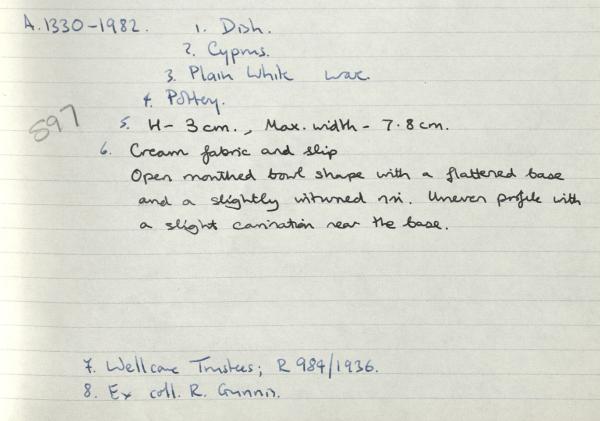 A.1330-1982. 1. Dish.
2. Cyprus.
3. Plain White ware.
4. Pottery.
597
5. H- 3cm., Max. width - 7.8cm.
6. Cream fabric and slip
Open mouthed bowl shape with a flattened base
and a slightly inturned rim. Uneven profile with
a slight carination near the base.
7. Wellcome Trustees; R 984/1936.
8. Ex coll. R. Gunnis.